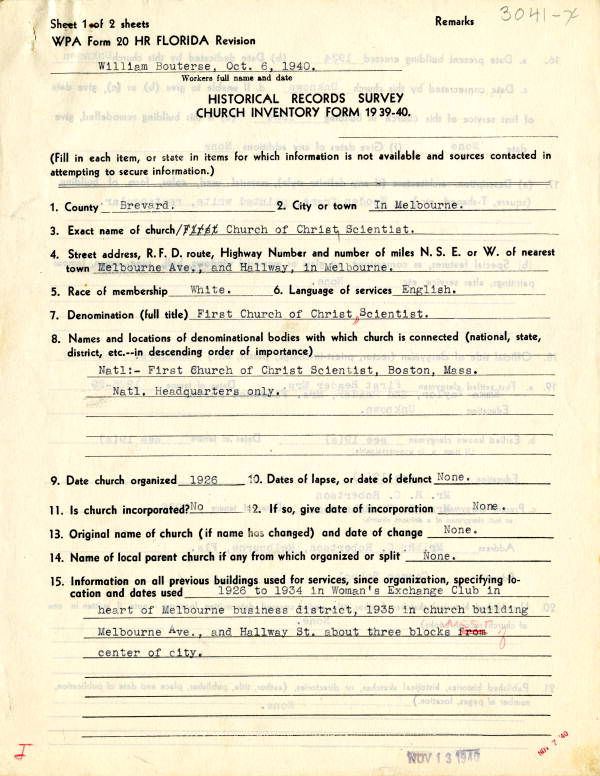 Sheet 1 of 2 sheets
Remarks
3041-X
WPA Form 20 HR FLORIDA Revision
William Bouterse, Oct. 6, 1940.
Workers full name and date
HISTORICAL RECORDS SURVEY
CHURCH INVENTORY FORM 1939-40.
(Fill in each item, or state in items for which information is not available and sources contacted in
attempting to secure information.)
1. County Brevard. 2. City or town In Melbourne.
3. Exact name of church/First Church of Christ, Scientist.
4. Street address, R. F. D. route, Highway Number and number of miles N. S. E. or W. of nearest
town Melbourne Ave., and Hallway, in Melbourne.
5. Race of membership White. 6. Language of services English.
7. Denomination (full title) First Church of Christ, Scientist.
8. Names and locations of denominational bodies with which church is connected (national, state,
district, etc.--in descending order of importance)
Natl:- First Church of Christ Scientist, Boston, Mass.
Natl. Headquarters only.
9. Date church organized 1926 10. Dates of lapse, or date of defunct None.
11. Is church incorporated? No 12. If so, give date of incorporation None.
13. Original name of church (if name has changed) and date of change None.
14. Name of local parent church if any from which organized or split None.
15. Information on all previous buildings used for services, since organization, specifying lo-
cation and dates used 1926 to 1934 in Woman's Exchange Club in
heart of Melbourne business district, 1935 in church building
Melbourne Ave., and Hallway St. about three blocks from
center of city.
I
NOV 13 1940
NOV 7 '40